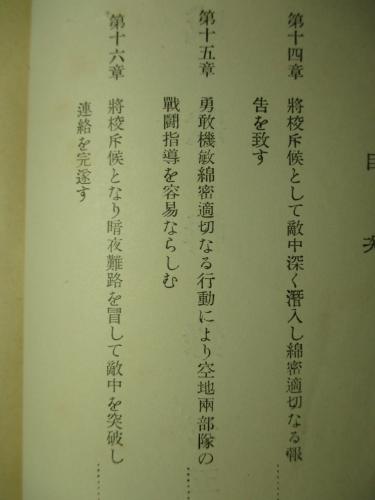 目次
第十四章 將校斥候として敵中深く潛入し綿密適切なる報
告を致す
第十五章 勇敢機敏綿密適切なる行動により空地兩部隊の
戰鬪指導を容易ならしむ
第十六章 將校斥候となり暗夜難路を冒して敵中を突破し
連絡を完遂す